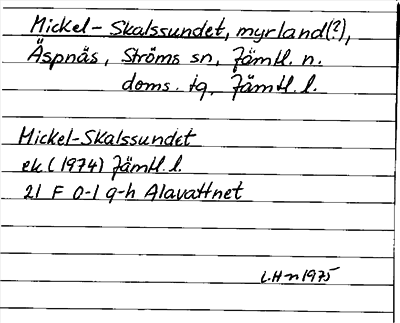 Mickel-Skalssundet, myrland(?),
Äspnäs, Ströms sn, Jämtl. n.
doms. tg, Jämtl. l.
Mickel-Skalssundet
ek (1974) Jämtl. l.
21 F 0-1 g-h Alavattnet
L.H-n 1975